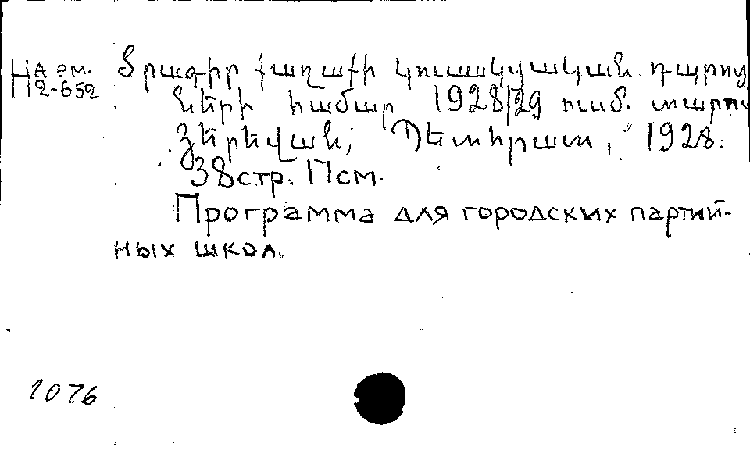 На арм.
Н2-652
Ծրագիր քաղաքի կուսակցական դպրոց
ների համար 1928/29 ուս. տարու
Յերեվան, Պետհրատ, 1928.
38стр. Псм.
Программа для городских партий-
ных школ.
1076